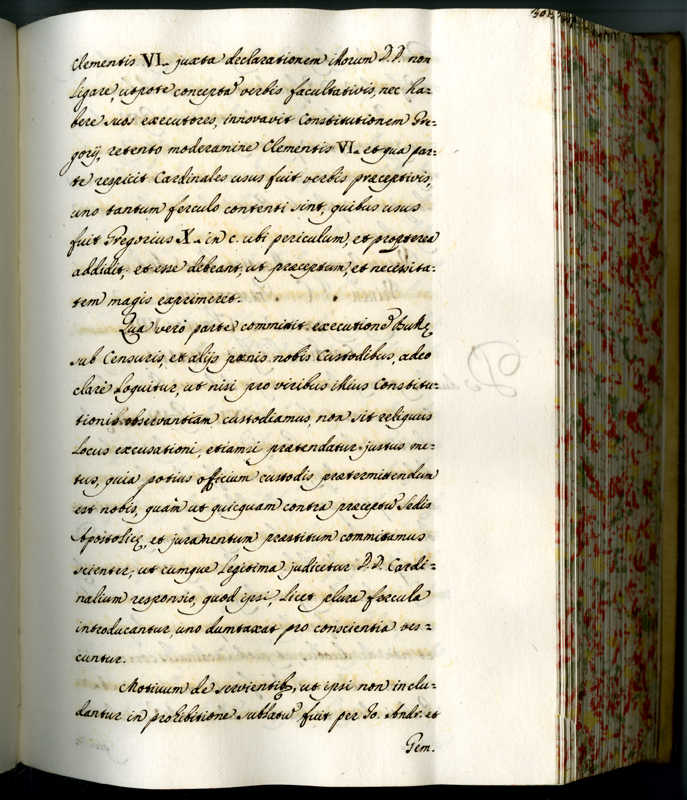 Clementis VI. juxta declarationem illorum D.D. non
ligare, utpote concepta verbis facultativis, nec ha=
bere suos executores, innovavit Constitutionem Gre=
gorij, retento moderamine Clementis VI. et qua par=
te respicit Cardinales usus fuit verbis præceptivis,
uno tantum ferculo contenti sint, quibus usus
fuit Gregorius X. in c. ubi periculum, et propterea
addidit, et esse debeant, ut præceptum, et necessita=
tem magis exprimeret.
Qua vero parte committit executionẽ Bullę
sub Censuris, et alijs pœnis nobis Custodibus, adeo
clare loquitur, ut nisi pro viribus illius Constitu=
tionis observantiam custodiamus, non sit reliquus
locus excusationi, etiamsi prætendatur justus me=
tus, quia potius officium custodis prætermittendum
est nobis, quàm ut quicquam contra præceptũ Sedis
Apostolicę, et juramentum præstitum committamus
scienter; ut cumque legitima judicetur D.D. Cardi=
nalium responsio, quod ipsi, licet plura fercula
introducantur, uno dumtaxat pro conscientia ves=
cuntur.
Motivum de servientib, ut ipsi non inclu=
dantur in prohibitione sublatũ fuit per Jo. Andr. et
Gem.